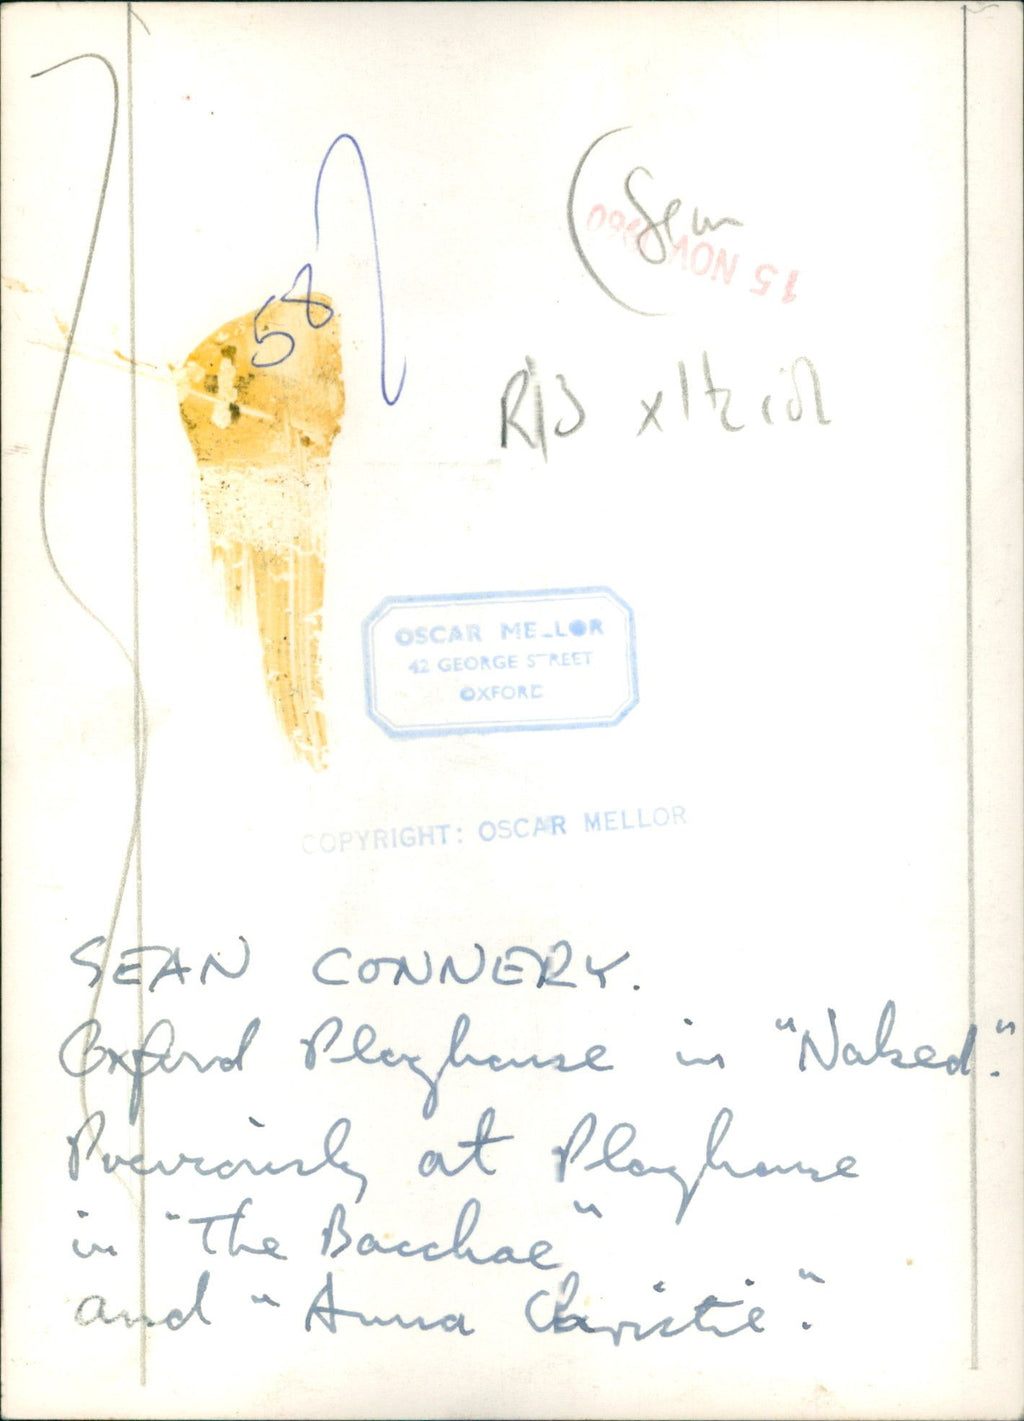 58
15 NOV 1960
OSCAR MELLOR
42 GEORGE STREET
OXFORD
COPYRIGHT: OSCAR MELLOR
SEAN CONNERY.
Oxford Playhouse in "Naked".
Previously at Playhouse
in "The Bacchae"
and "Anna Christie".